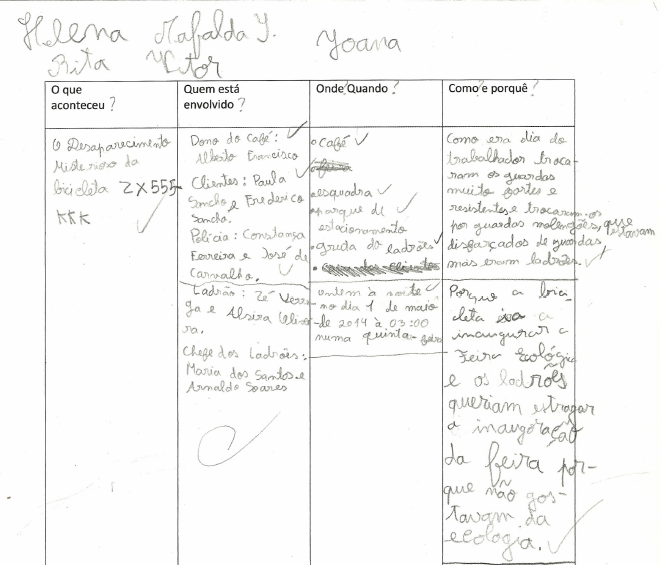 Helena Mafalda Y. Yoana
Rita Vitor
O que
aconteceu ?
Quem está
envolvido ?
Onde? Quando ?
Como e porquê ?
O Desaparecimento
Misterioso da
bicicleta ZX555-
KKK
Dono do Café:
Alberto Francisco
Clientes: Paula
Sancho e Frederico
Sancho.
Polícia: Constança
Ferreira e José de
Carvalho.
Ladrão: Zé Verru-
ga e Alzira Olivei-
ra.
Chefe dos Ladrões:
Maria dos Santos e
Arnaldo Soares
Café
esquadra
parque de
estacionamento
gruta do ladrões
ontem à noite
no dia 1 de maio
de 2014 à 03:00
numa quinta-feira
Como era dia do
trabalhador troca-
ram os guardas
muito fortes e
resistentes e trocaram-os
por guardas molengões, que
estavam
disfarçados de guardas,
mas eram ladrões.
Porque a bici-
cleta ia a
inaugurar a
Feira Ecológica
e os ladrões
queriam estragar
a inauguração
da feira por-
que não gos-
tavam da
ecologia.